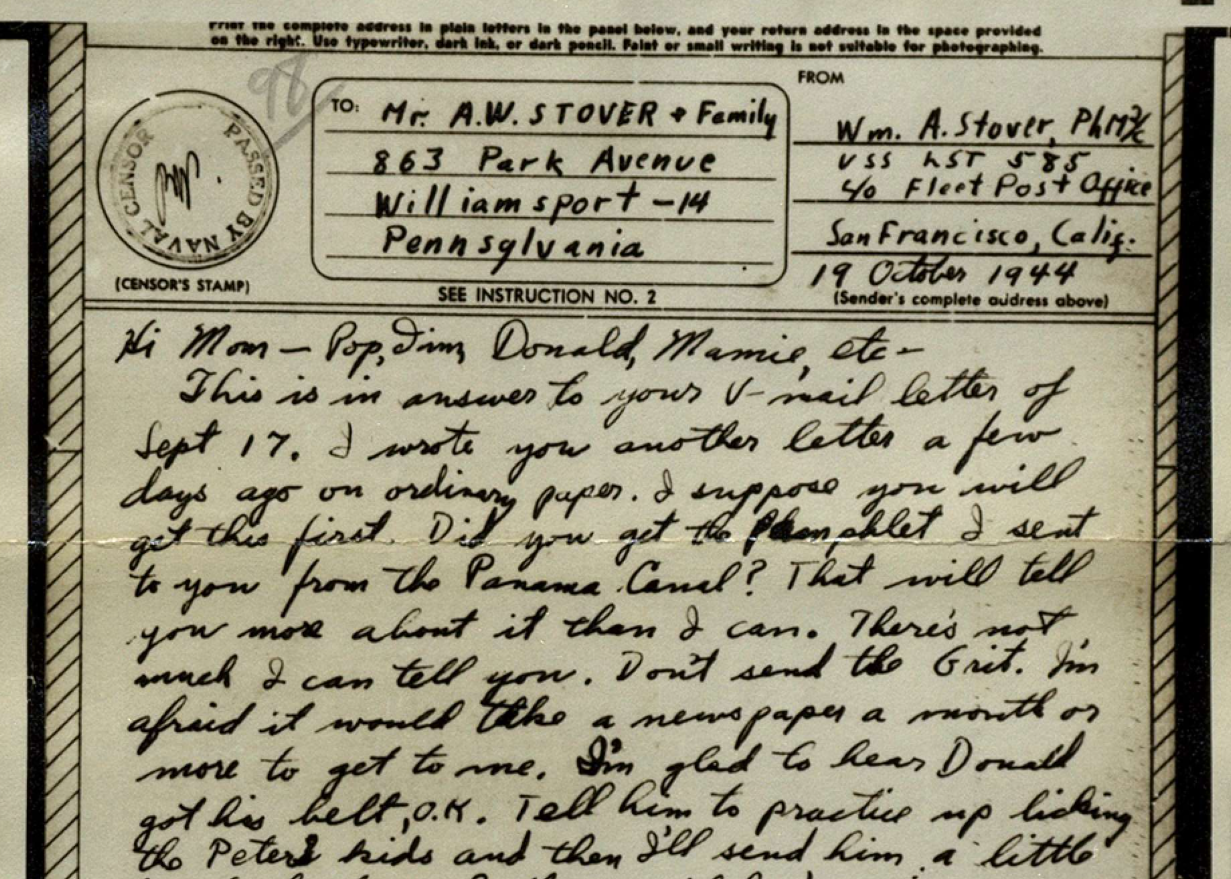 Print the complete address in plain letters in the panel below, and your return address in the space provided
on the right. Use typewriter, dark ink, or dark pencil. Faint or small writing is not suitable for photographing.
98
PASSED BY NAVAL CENSOR
(CENSOR'S STAMP)
TO: Mr. A.W. STOVER + Family
863 Park Avenue
Williamsport - 14
Pennsylvania
SEE INSTRUCTION NO. 2
FROM
Wm. A. Stover, PhM 2/c
USS LST 585
c/o Fleet Post Office
San Francisco, Calif.
19 October 1944
(Sender's complete address above)
Hi Mom - Pop, Jim, Donald, Mamie, etc -
This is in answer to your V-mail letter of
Sept 17. I wrote you another letter a few
days ago on ordinary paper. I suppose you will
get this first. Did you get the Pamphlet I sent
to you from the Panama Canal? That will tell
you more about it than I can. There's not
much I can tell you. Don't send the Grit. I'm
afraid it would take a newspaper a month or
more to get to me. I'm glad to hear Donald
got his belt, O.K. Tell him to practice up licking
the Peters kids and then I'll send him a little